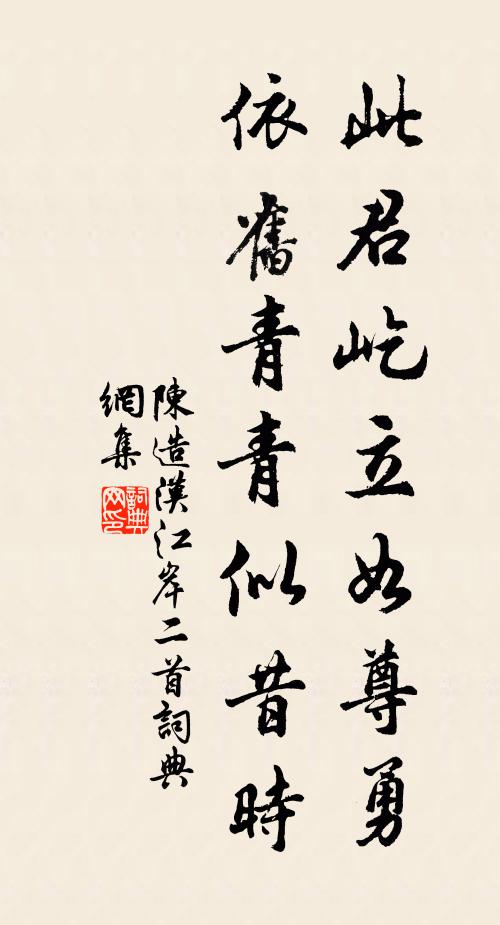 此君屹立如尊勇
依舊青青似昔時
陳造漢江岸二首詞典
網集
詞典網印